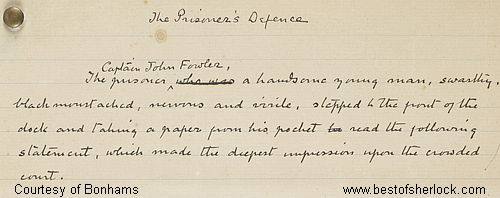 The Prisoner's Defence
Captain John Fowler,
The prisoner who was a handsome young man, swarthy,
black moustached, nervous and virile, stepped to the front of the
dock and taking a paper from his pocket to read the following
statement, which made the deepest impression upon the crowded
court.
Courtesy of Bonhams
www.bestofsherlock.com